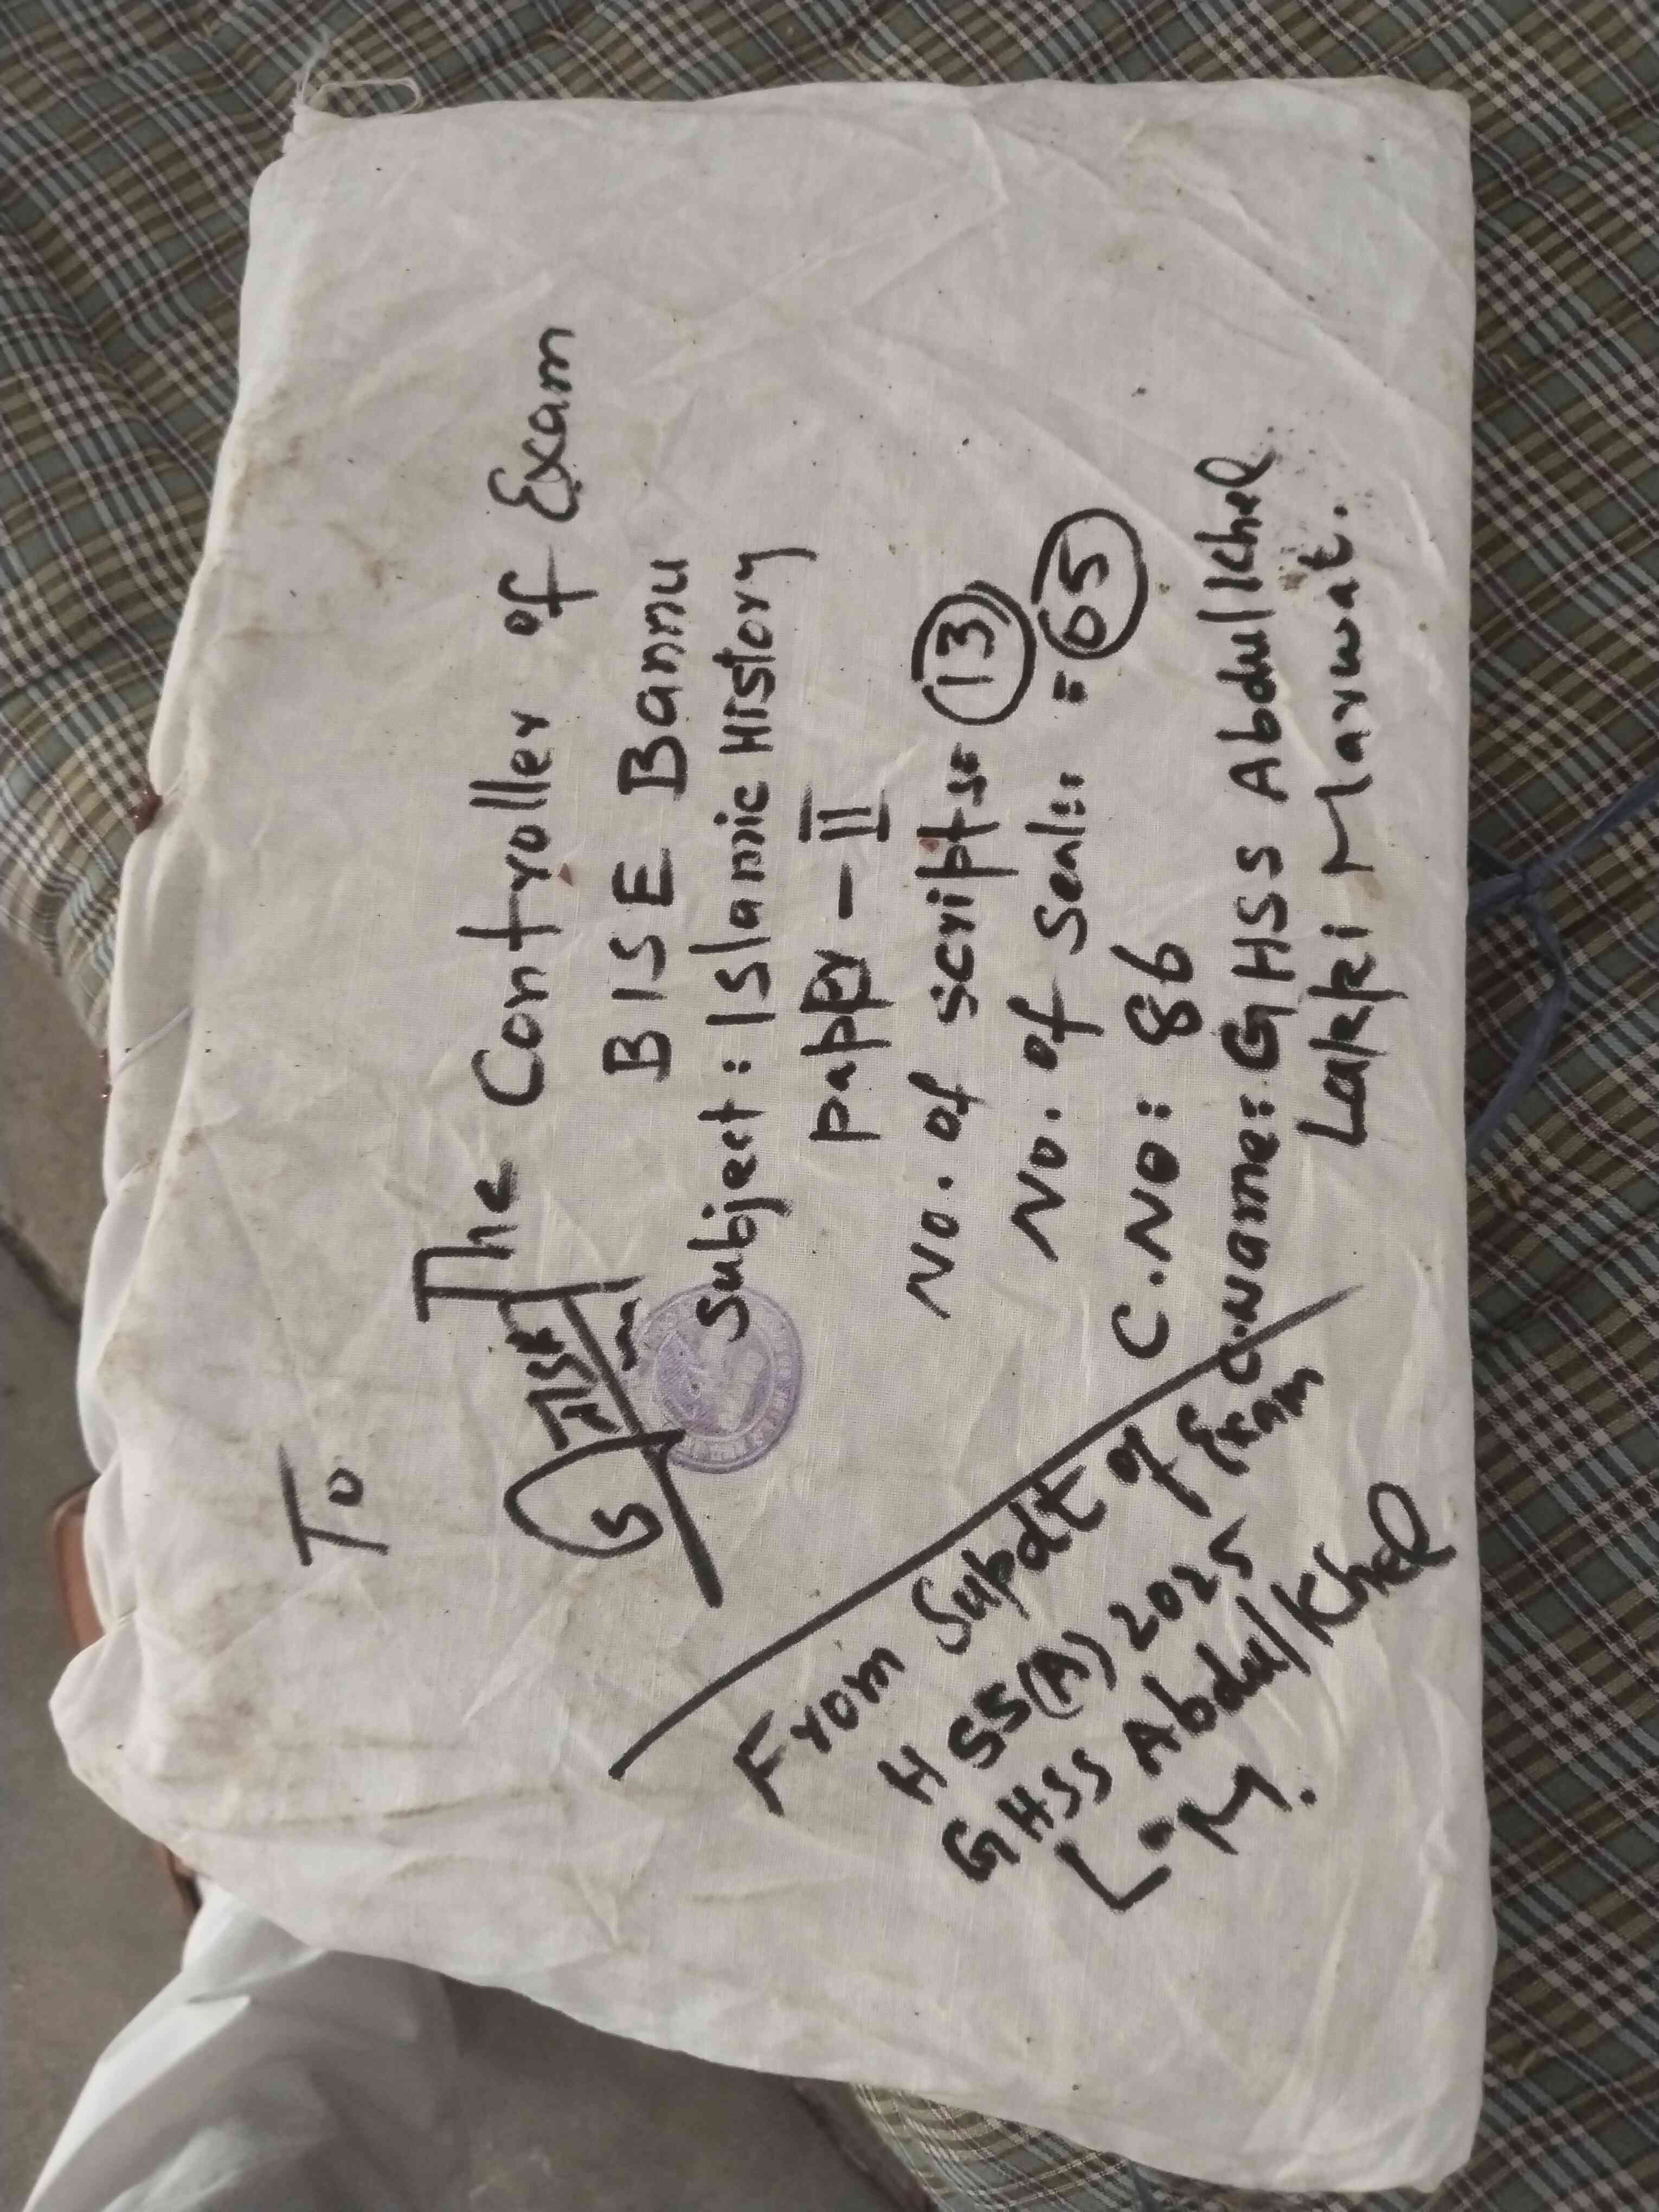 To
The Controller of Exam
BISE Bannu
Subject: Islamic History
paper - II
No. of scripts= (13)
No. of Seals: = (05)
C.No: 86
C.Name: GHSS Abdul Khel
Lakki Marwat.
From Supdt of Exam
HSS(A) 2025
GHSS Abdul Khel
L.M.